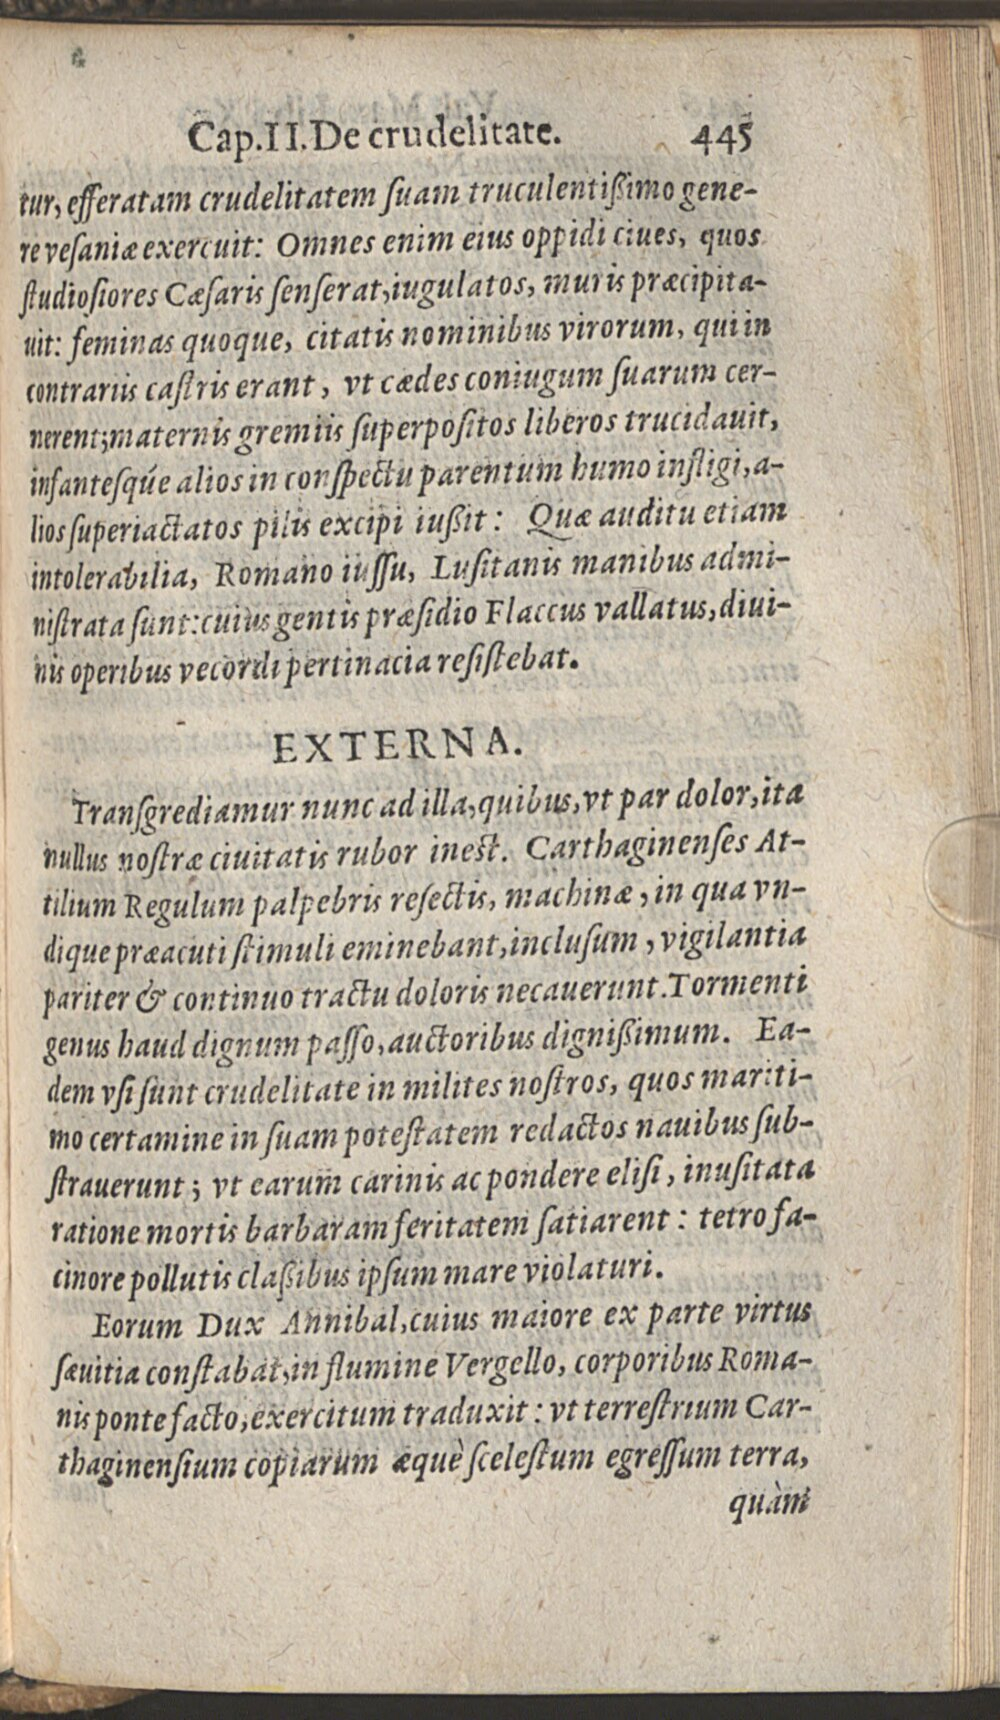 Cap.II.De crudelitate. 445
tur, efferatam crudelitatem ſuam truculentißimo gene-
re veſaniæ exercuit: Omnes enim eius oppidi ciues, quos
ſtudioſiores Cæſaris ſenſerat, iugulatos, muris præcipita-
uit: feminas quoque, citatis nominibus virorum, qui in
contrariis caſtris erant, vt cædes coniugum ſuarum cer-
nerent; maternis gremiis ſuperpoſitos liberos trucidauit,
infanteſq́ue alios in conſpectu parentum humo infligi, a-
lios ſuperiactatos pilis excipi iußit: Quæ auditu etiam
intolerabilia, Romano iuſſu, Luſitanis manibus admi-
niſtrata ſunt: cuius gentis præſidio Flaccus vallatus, diui-
nis operibus vecordi pertinacia reſiſtebat.
EXTERNA.
Tranſgrediamur nunc ad illa, quibus, vt par dolor, ita
nullus noſtræ ciuitatis rubor ineſt. Carthaginenſes At-
tilium Regulum palpebris reſectis, machinæ, in qua vn-
dique præacuti ſtimuli eminebant, incluſum, vigilantia
pariter & continuo tractu doloris necauerunt. Tormenti
genus haud dignum paſſo, auctoribus dignißimum. Ea-
dem vſi ſunt crudelitate in milites noſtros, quos mariti-
mo certamine in ſuam poteſtatem redactos nauibus ſub-
ſtrauerunt; vt earum carinis ac pondere eliſi, inuſitata
ratione mortis barbaram feritatem ſatiarent: tetro fa-
cinore pollutis claßibus ipſum mare violaturi.
Eorum Dux Annibal, cuius maiore ex parte virtus
ſæuitia conſtabat, in flumine Vergello, corporibus Roma-
nis ponte facto, exercitum traduxit: vt terreſtrium Car-
thaginenſium copiarum æquè ſceleſtum egreſſum terra,
quàm